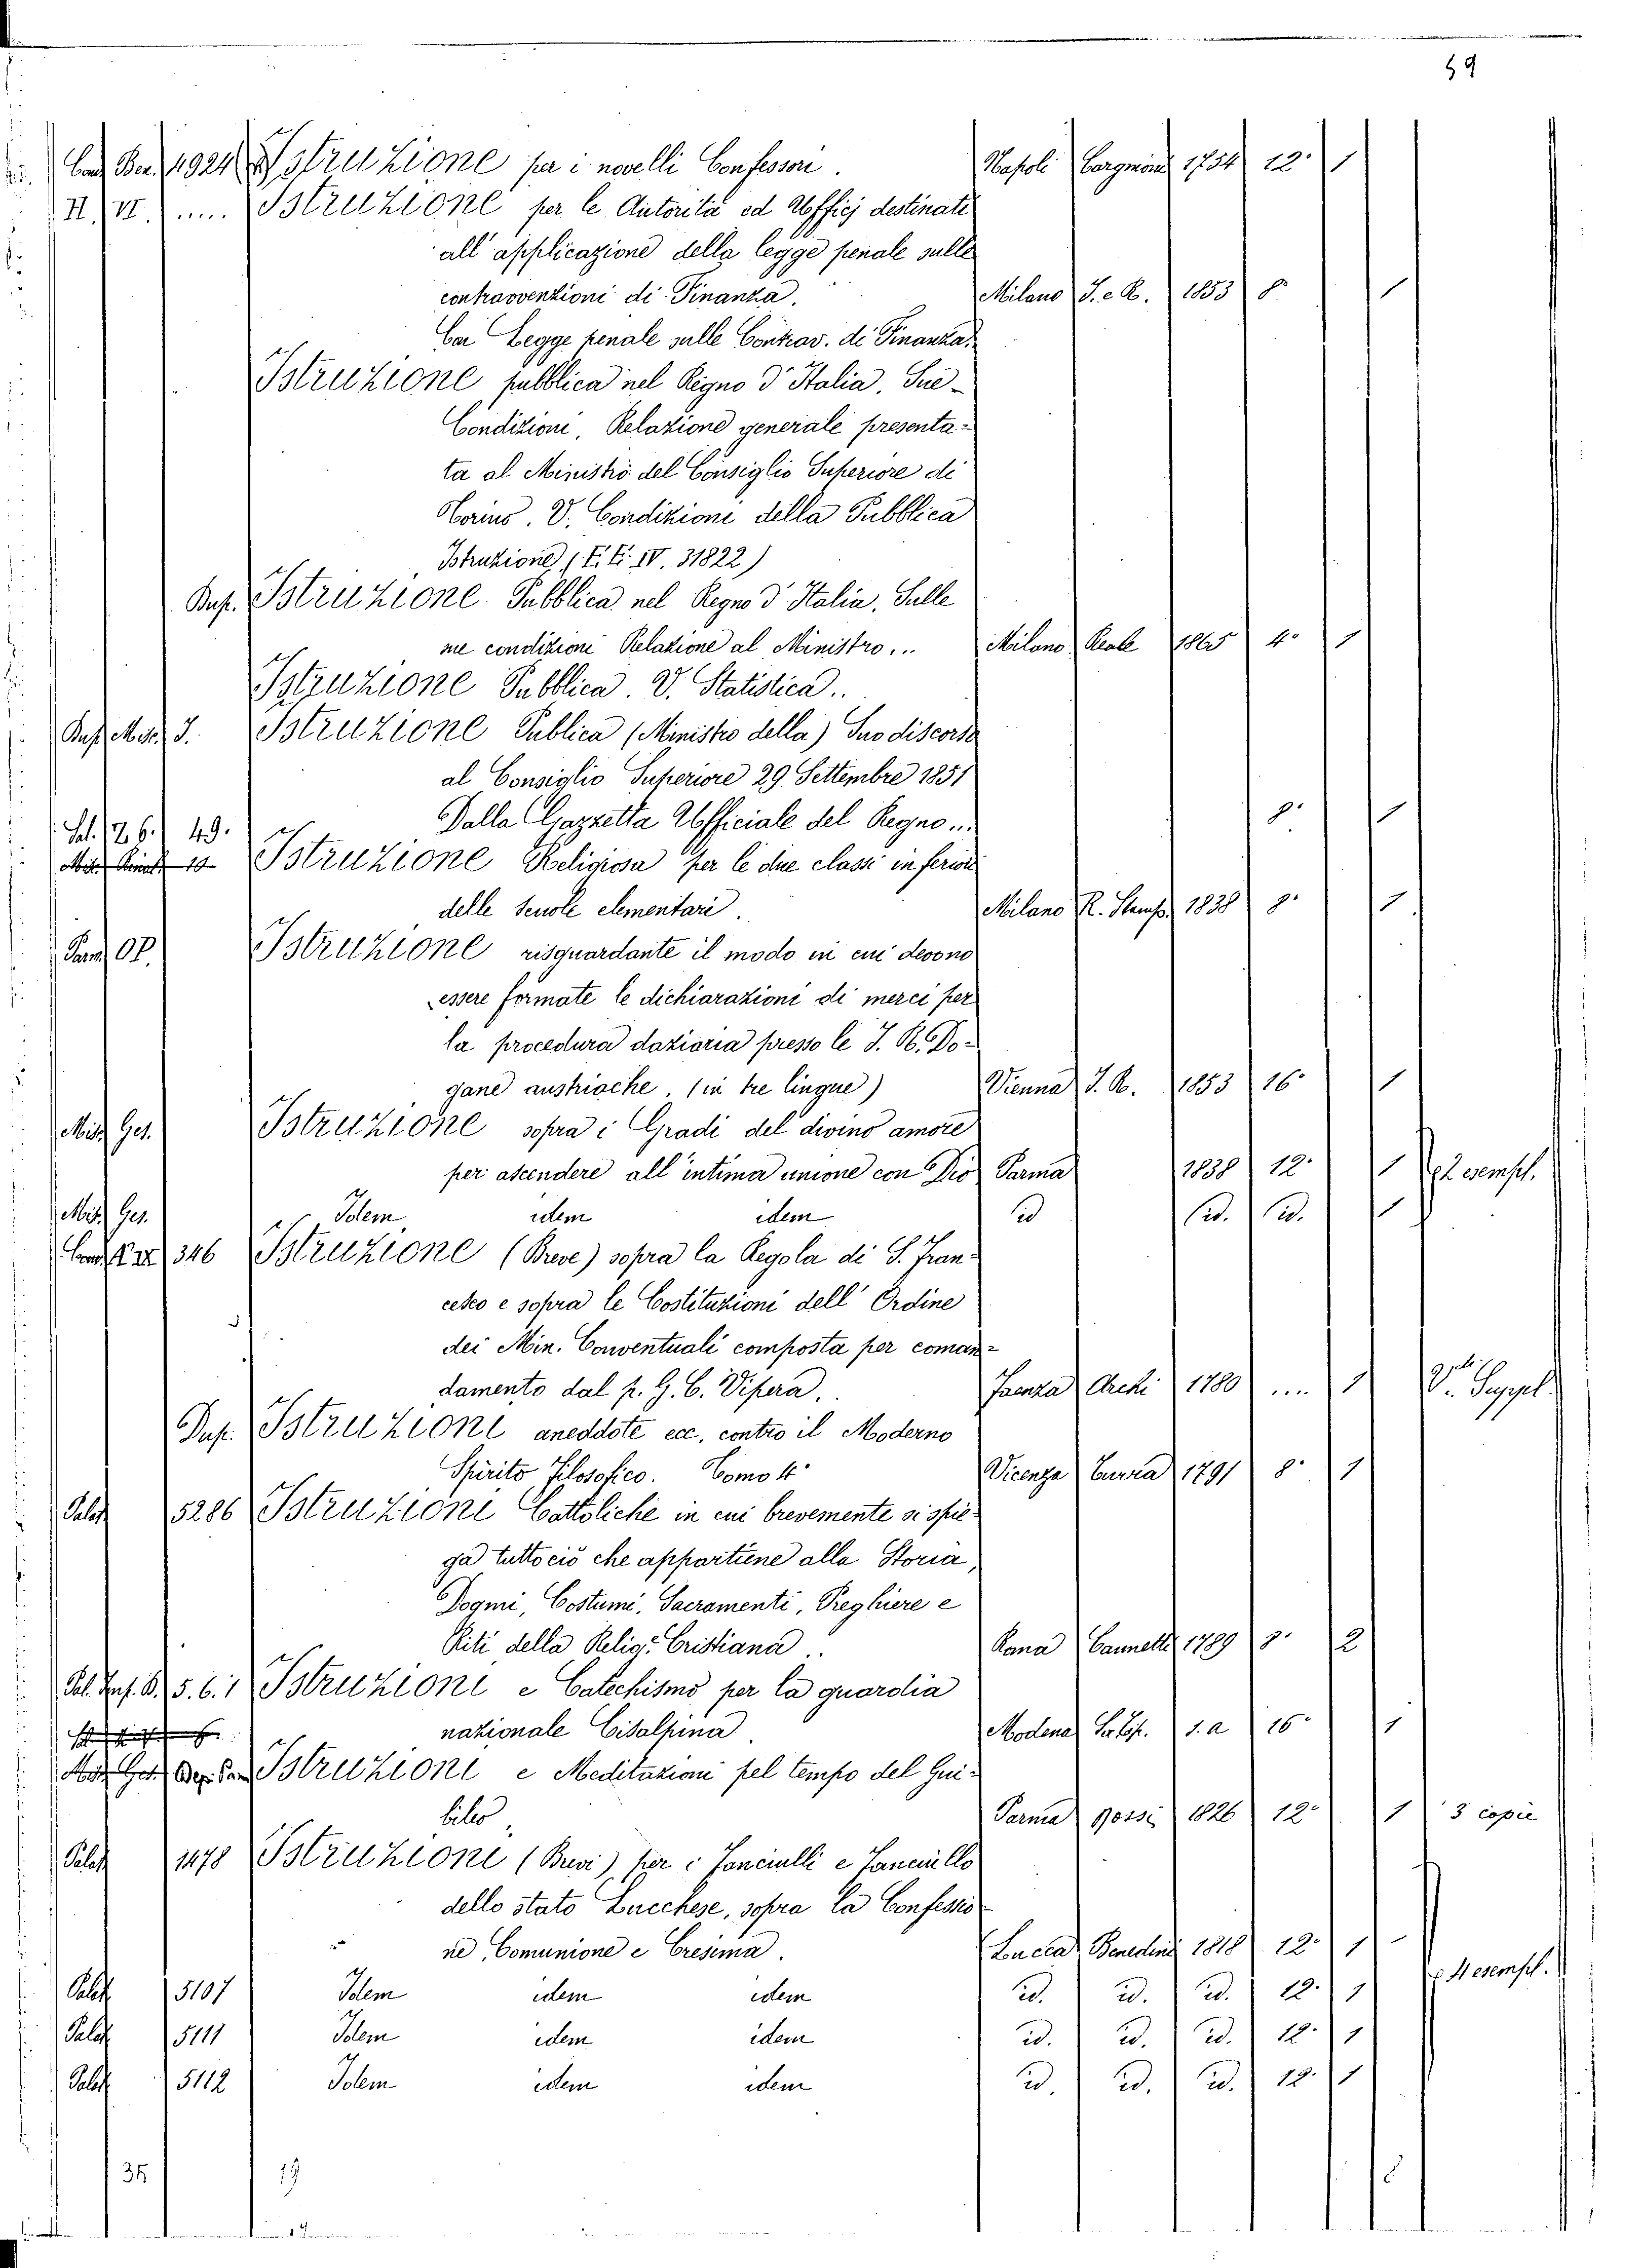 59
1924 Istruzione per i novelli Confessori. Napoli 1754 12.° 1
II. VI. .... Istruzione per le Autorità ed Ufficj destinati
all'applicazione della legge penale sulle
contravvenzioni di Finanza. Milano I. e R. 1853 8.° 1
Legge penale sulle Contrav. di Finanza.
Istruzione pubblica nel Regno d'Italia. Sue
Condizioni, Relazione generale presenta-
ta al Ministro del Consiglio Superiore di
Torino. V. Condizioni della Pubblica
Istruzione (IV. 31822)
Istruzione Pubblica nel Regno d'Italia, Sulle
sue condizioni Relazione al Ministro... Milano Reale 1865 4° 1
Istruzione Pubblica. V. Statistica..
Istruzione Publica (Ministro della) Suo discorso
al Consiglio Superiore 29 Settembre 1851
Dalla Gazzetta Ufficiale del Regno... 8.° 1
49.
10 Istruzione Religiosa per le due classi inferiori
delle Scuole elementari. Milano R. Stamp. 1838 8.° 1
Istruzione risguardante il modo in cui devono
essere formate le dichiarazioni di merci per
la procedura daziaria presso le I. R. Do-
gane austriache. (in tre lingue) Vienna I. R. 1853 16° 1
Istruzione sopra i Gradi del divino amore
per ascendere all'intima unione con Dio Parma 1838 12° 1 2 esempl.
Idem idem idem id id. id. 1
346 Istruzione (Breve) sopra la Regola di S. Fran-
cesco e sopra le Costituzioni dell'Ordine
dei Min. Conventuali composta per coman-
damento dal p. G. C. Vipera. Faenza Archi 1780 .... 1 V. Suppl.
Istruzioni aneddote ecc, contro il Moderno
Spirito Filosofico. Tomo 4° Vicenza Turra 1791 8° 1
Palat. 5286 Istruzioni Cattoliche in cui brevemente si spie-
ga tutto ciò che appartiene alla Storia,
Dogmi, Costumi, Sacramenti, Preghiere e
Riti della Relig.e Cristiana.. Cannetti 1789 8° 2
5. 6. 1 Istruzioni e Catechismo per la guardia
nazionale Cisalpina Modena s. a 16° 1
Istruzioni e Meditazioni pel tempo del Giu-
bileo. Parma Rossi 1826 12° 1 3 copie
Palat. 1478 Istruzioni (Brevi) per i Fanciulli e Fanciulle
dello stato Lucchese, sopra la Confessio-
ne, Comunione e Cresima. Lucca Benedini 1818 12° 1
Palat. 5107 Idem idem idem id. id. id. 12° 1 4 esempl.
Palat. 5111 Idem idem idem id. id. id. 12° 1
Palat. 5112 Idem idem idem id. id. id. 12° 1
35 19